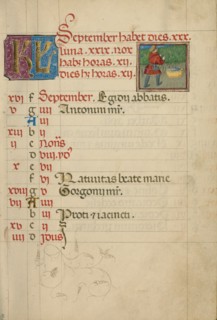 KL September habet dies. xxx.
luna. xxix. nox
habet horas. xii.
dies hꝫ horas. xii.
xvi f September. Egidii abbatis.
v g iiii Antonini mr̄.
A iii
xiii b ii
ii c Nonis
d viii
x e vii
f vi Natiuitas beate marie
xviii g v Gorgonii mr̄.
vii A iiii
b iii Proti et iacincti.
xv c ii
iiii d Idus